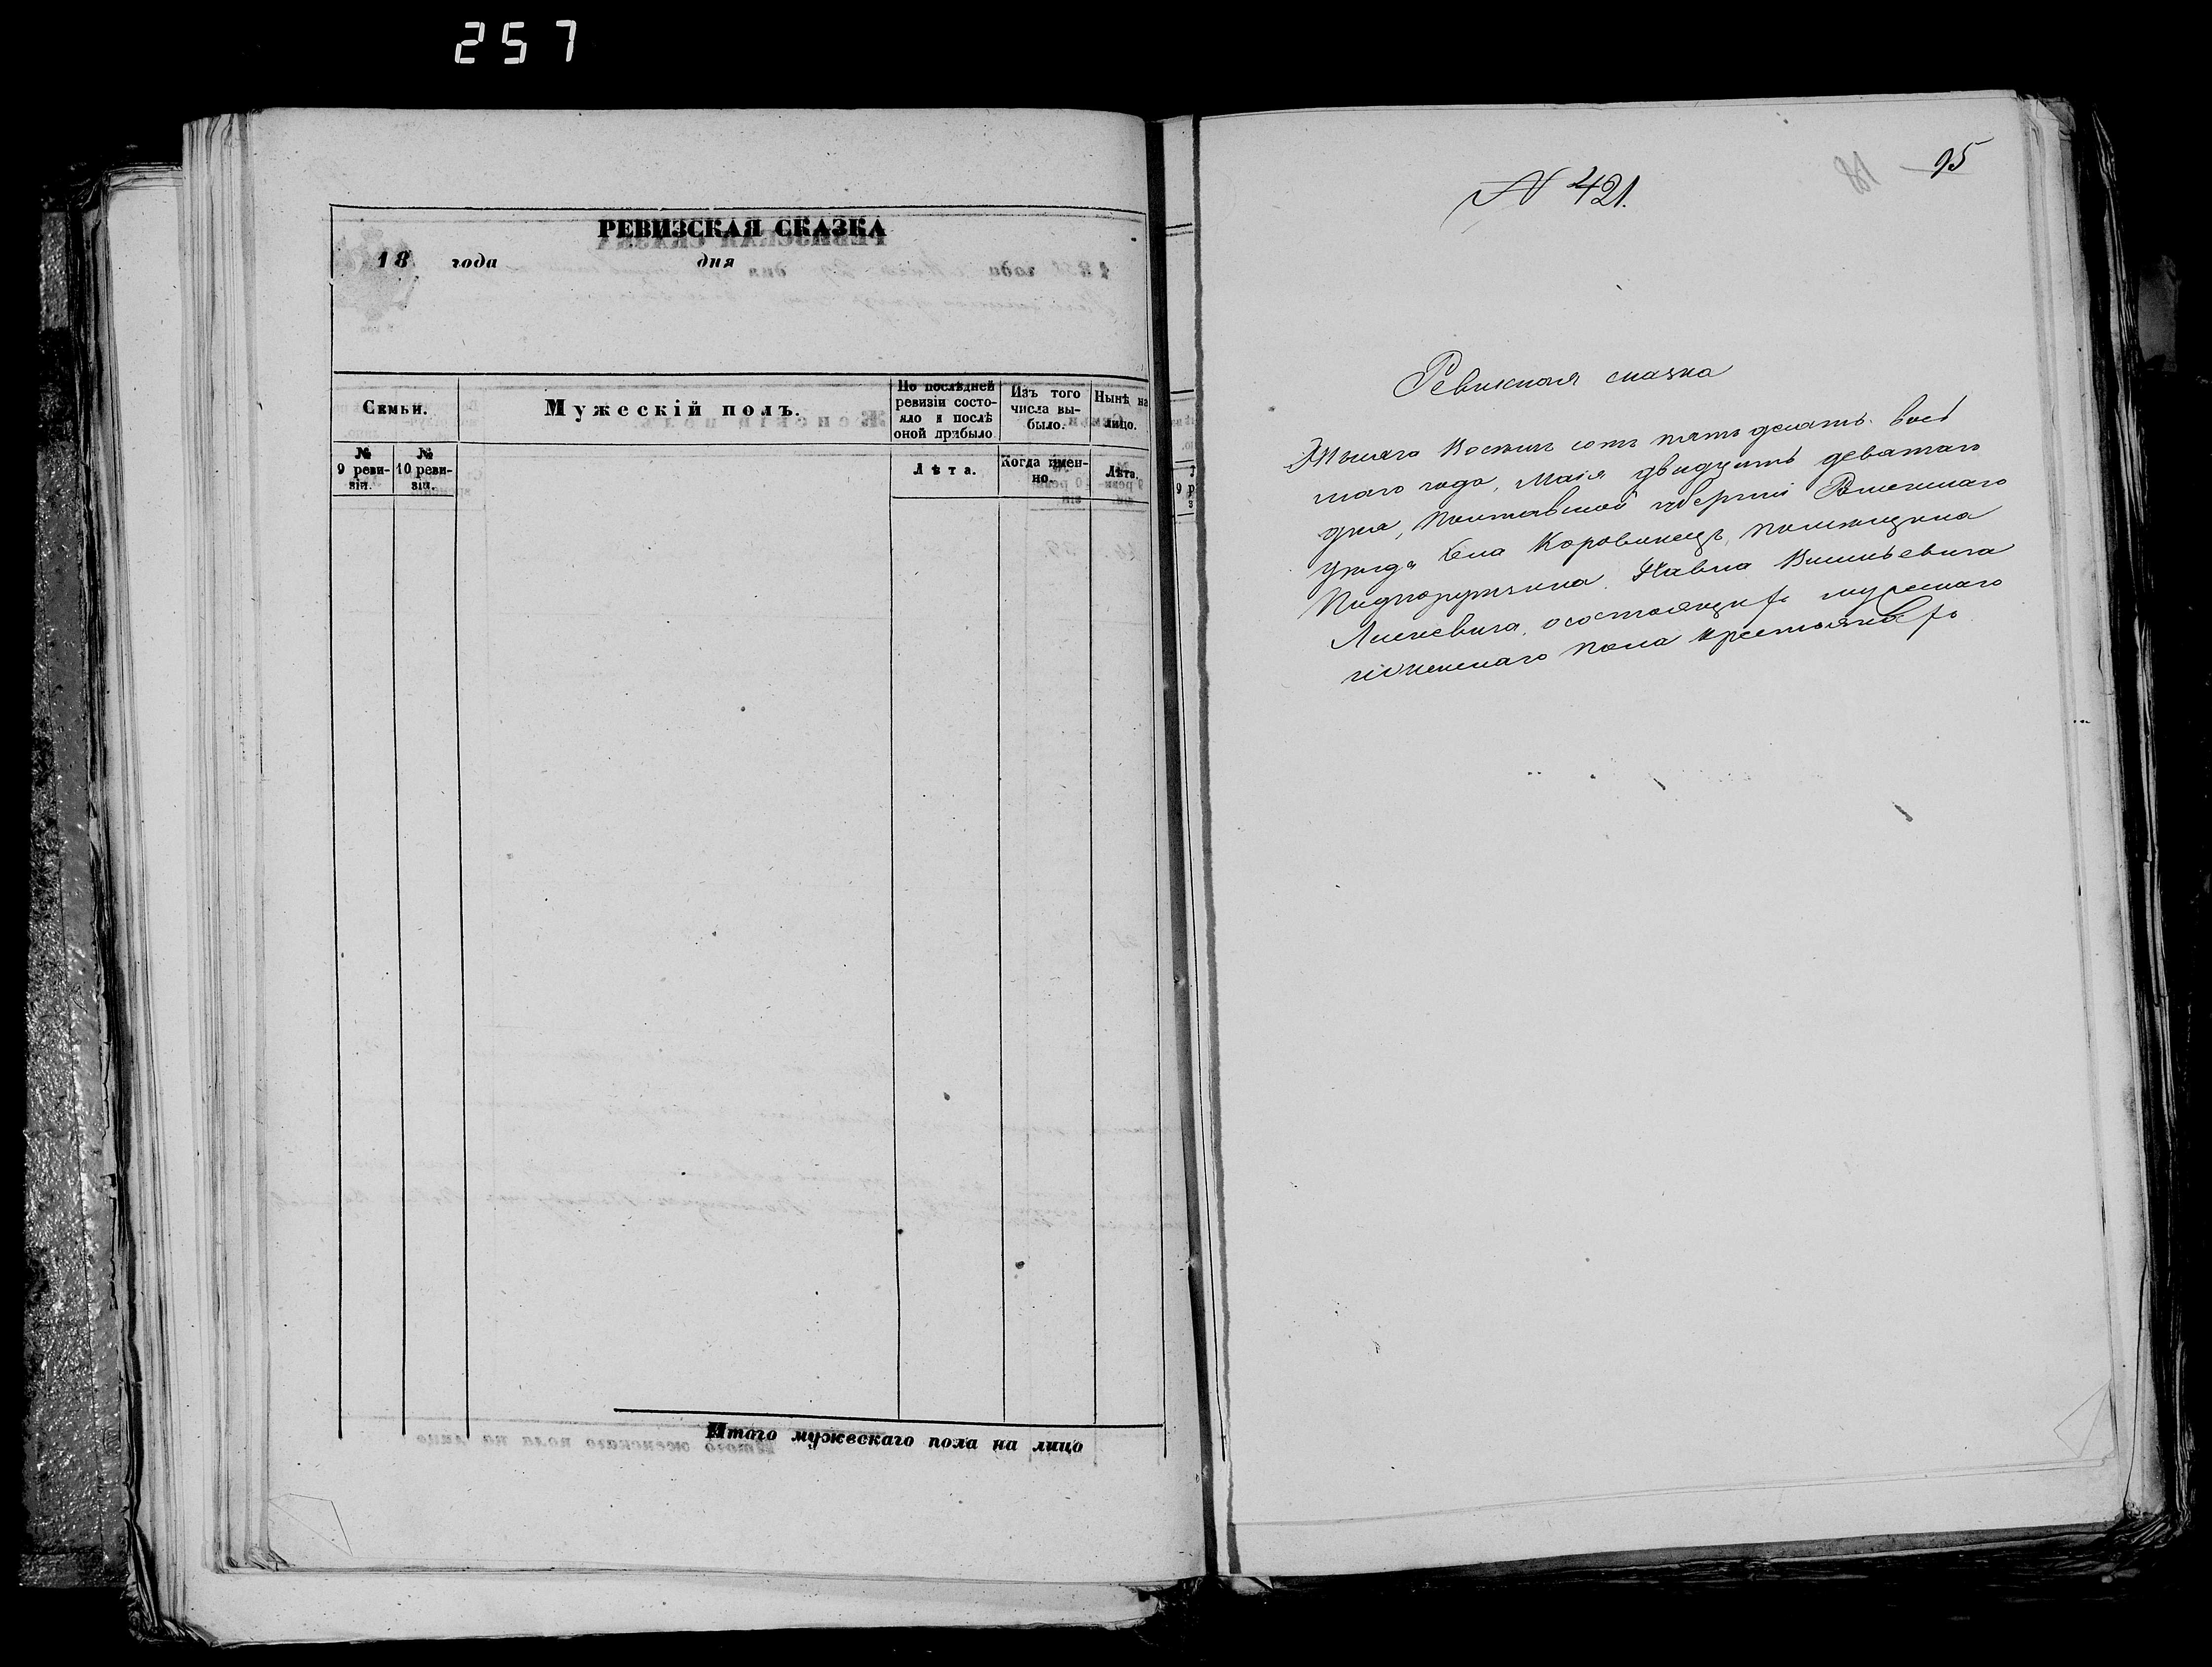 257
РЕВИЗСКАЯ СКАЗКА
18 года дня
Семьи.
Мужескій полъ.
По послѣдней ревизіи состояло и послѣ оной прибыло
Изъ того числа выбыло.
Нынѣ на лицо.
№ 9 ревизіи.
№ 10 ревизіи.
Лѣта.
Когда именно.
Лѣта.
Итого мужескаго пола на лицо
N 421.
95
Ревизская сказка
Тысяча восемь сотъ пятьдесятъ вось
маго года, Маія двадцать девятаго
дня, Полтавской губерніи Роменскаго
уѣзда села Коровинецъ, помѣщика
Подпоручика Павла Васильевича
о состоящихъ мужескаго
и женскаго пола крестьянахъ